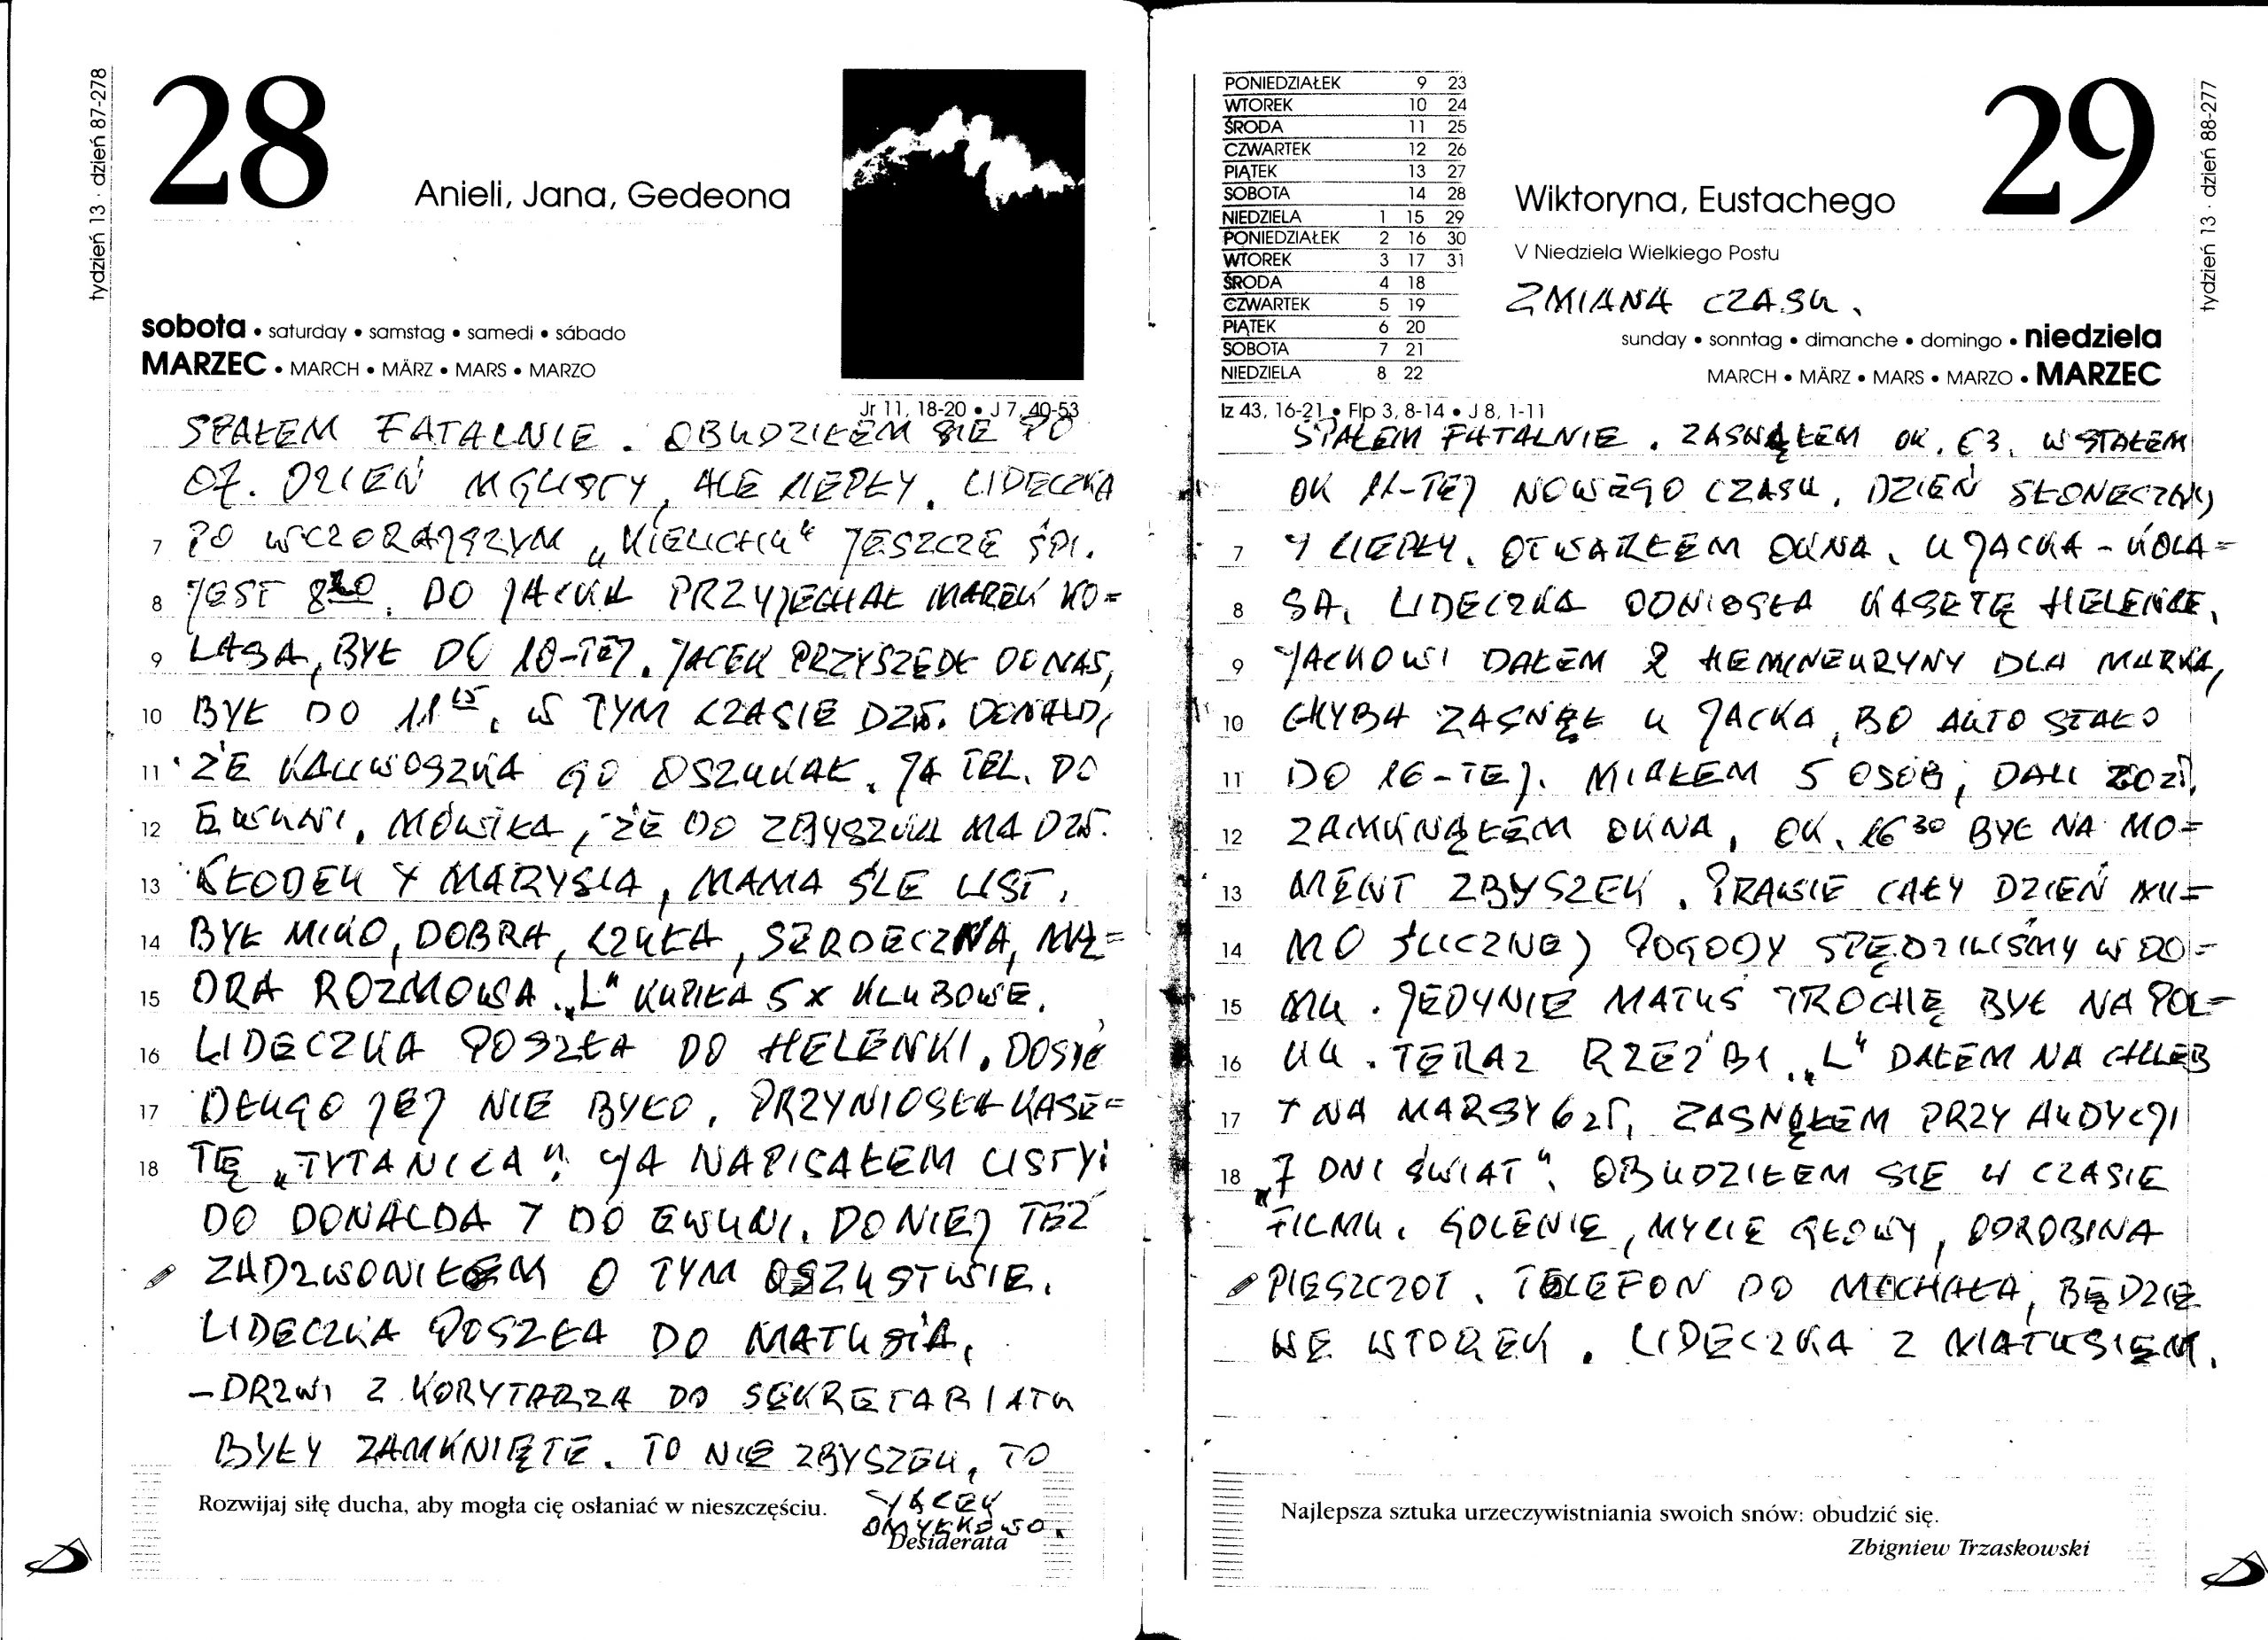 tydzień 13 · dzień 87-278
28
Anieli, Jana, Gedeona
sobota • saturday • samstag • samedi • sábado
MARZEC • MARCH • MÄRZ • MARS • MARZO
Jr 11, 18-20 • J 7, 40-53
SPAŁEM FATALNIE. OBUDZIŁEM SIĘ PO
07. DZIEŃ MGLISTY, ALE CIEPŁY. LIDECZKA
7 PO WCZORAJSZYM „KIELICHU" JESZCZE ŚPI.
8 JEST 8²⁰. DO JACKA PRZYJECHAŁ MAREK KO=
9 LASA, BYŁ DO 10-TEJ. JACEK PRZYSZEDŁ DO NAS,
10 BYŁ DO 11¹⁵. W TYM CZASIE DZW. DONALD,
11 ŻE KALWOSZKA GO OSZUKAŁ. JA TEL. DO
12 EWUNI. MÓWIŁA, ŻE DO ZBYSZKA MA DZW.
13 KŁODEK Y MARYSIA, MAMA ŚLE LIST.
14 BYŁ MIŁO, DOBRA, CZUŁA, SERDECZNA, MĄ=
15 DRA ROZMOWA. „L" KUPIŁA 5 X KLUBOWE.
16 LIDECZKA POSZŁA DO HELENKI. DOSYĆ
17 DŁUGO JEJ NIE BYŁO. PRZYNIOSŁA KASE=
18 TĘ „TYTANICA". JA NAPISAŁEM LISTY:
DO DONALDA Y DO EWUNI. DO NIEJ TEŻ
ZADZWONIŁEM O TYM OSZUSTWIE.
LIDECZKA POSZŁA DO MATUSIA.
– DRZWI Z KORYTARZA DO SEKRETARIATU
BYŁY ZAMKNIĘTE. TO NIE ZBYSZEK, TO
JACEK
OMYŁKOWO.
Rozwijaj siłę ducha, aby mogła cię osłaniać w nieszczęściu.
Desiderata
PONIEDZIAŁEK 9 23
WTOREK 10 24
ŚRODA 11 25
CZWARTEK 12 26
PIĄTEK 13 27
SOBOTA 14 28
NIEDZIELA 1 15 29
PONIEDZIAŁEK 2 16 30
WTOREK 3 17 31
ŚRODA 4 18
CZWARTEK 5 19
PIĄTEK 6 20
SOBOTA 7 21
NIEDZIELA 8 22
Wiktoryna, Eustachego
29
tydzień 13 · dzień 88-277
V Niedziela Wielkiego Postu
ZMIANA CZASU.
sunday • sonntag • dimanche • domingo • niedziela
MARCH • MÄRZ • MARS • MARZO • MARZEC
Iz 43, 16-21 • Flp 3, 8-14 • J 8, 1-11
SPAŁEM FATALNIE. ZASNĄŁEM OK. 03. WSTAŁEM
OK 11-TEJ NOWEGO CZASU. DZIEŃ SŁONECZNY
7 Y CIEPŁY. OTWARŁEM OKNA. U JACKA – KOLA=
8 SA. LIDECZKA ODNIOSŁA KASETĘ HELENCE.
9 JACKOWI DAŁEM 2 HEMINEURYNY DLA MARKA,
10 CHYBA ZASNĄŁ U JACKA, BO AUTO STAŁO
11 DO 16-TEJ. MIAŁEM 5 OSÓB, DALI 20 zł.
12 ZAMKNĄŁEM OKNA. OK. 16³⁰ BYŁ NA MO=
13 MENT ZBYSZEK. PRAWIE CAŁY DZIEŃ MI=
14 MO ŚLICZNEJ POGODY SPĘDZILIŚMY W DO=
15 MU. JEDYNIE MATUŚ TROCHĘ BYŁ NA POL=
16 KU. TERAZ RZEŹBI. „L" DAŁEM NA CHLEB
17 Y NA MARSY 6 zł. ZASNĄŁEM PRZY AUDYCJI
18 „7 DNI ŚWIAT". OBUDZIŁEM SIĘ W CZASIE
FILMU. GOLENIE, MYCIE GŁOWY, ODROBINA
PIESZCZOT. TELEFON DO MICHAŁA, BĘDZIE
WE WTOREK. LIDECZKA Z MATUSIEM.
Najlepsza sztuka urzeczywistniania swoich snów: obudzić się.
Zbigniew Trzaskowski